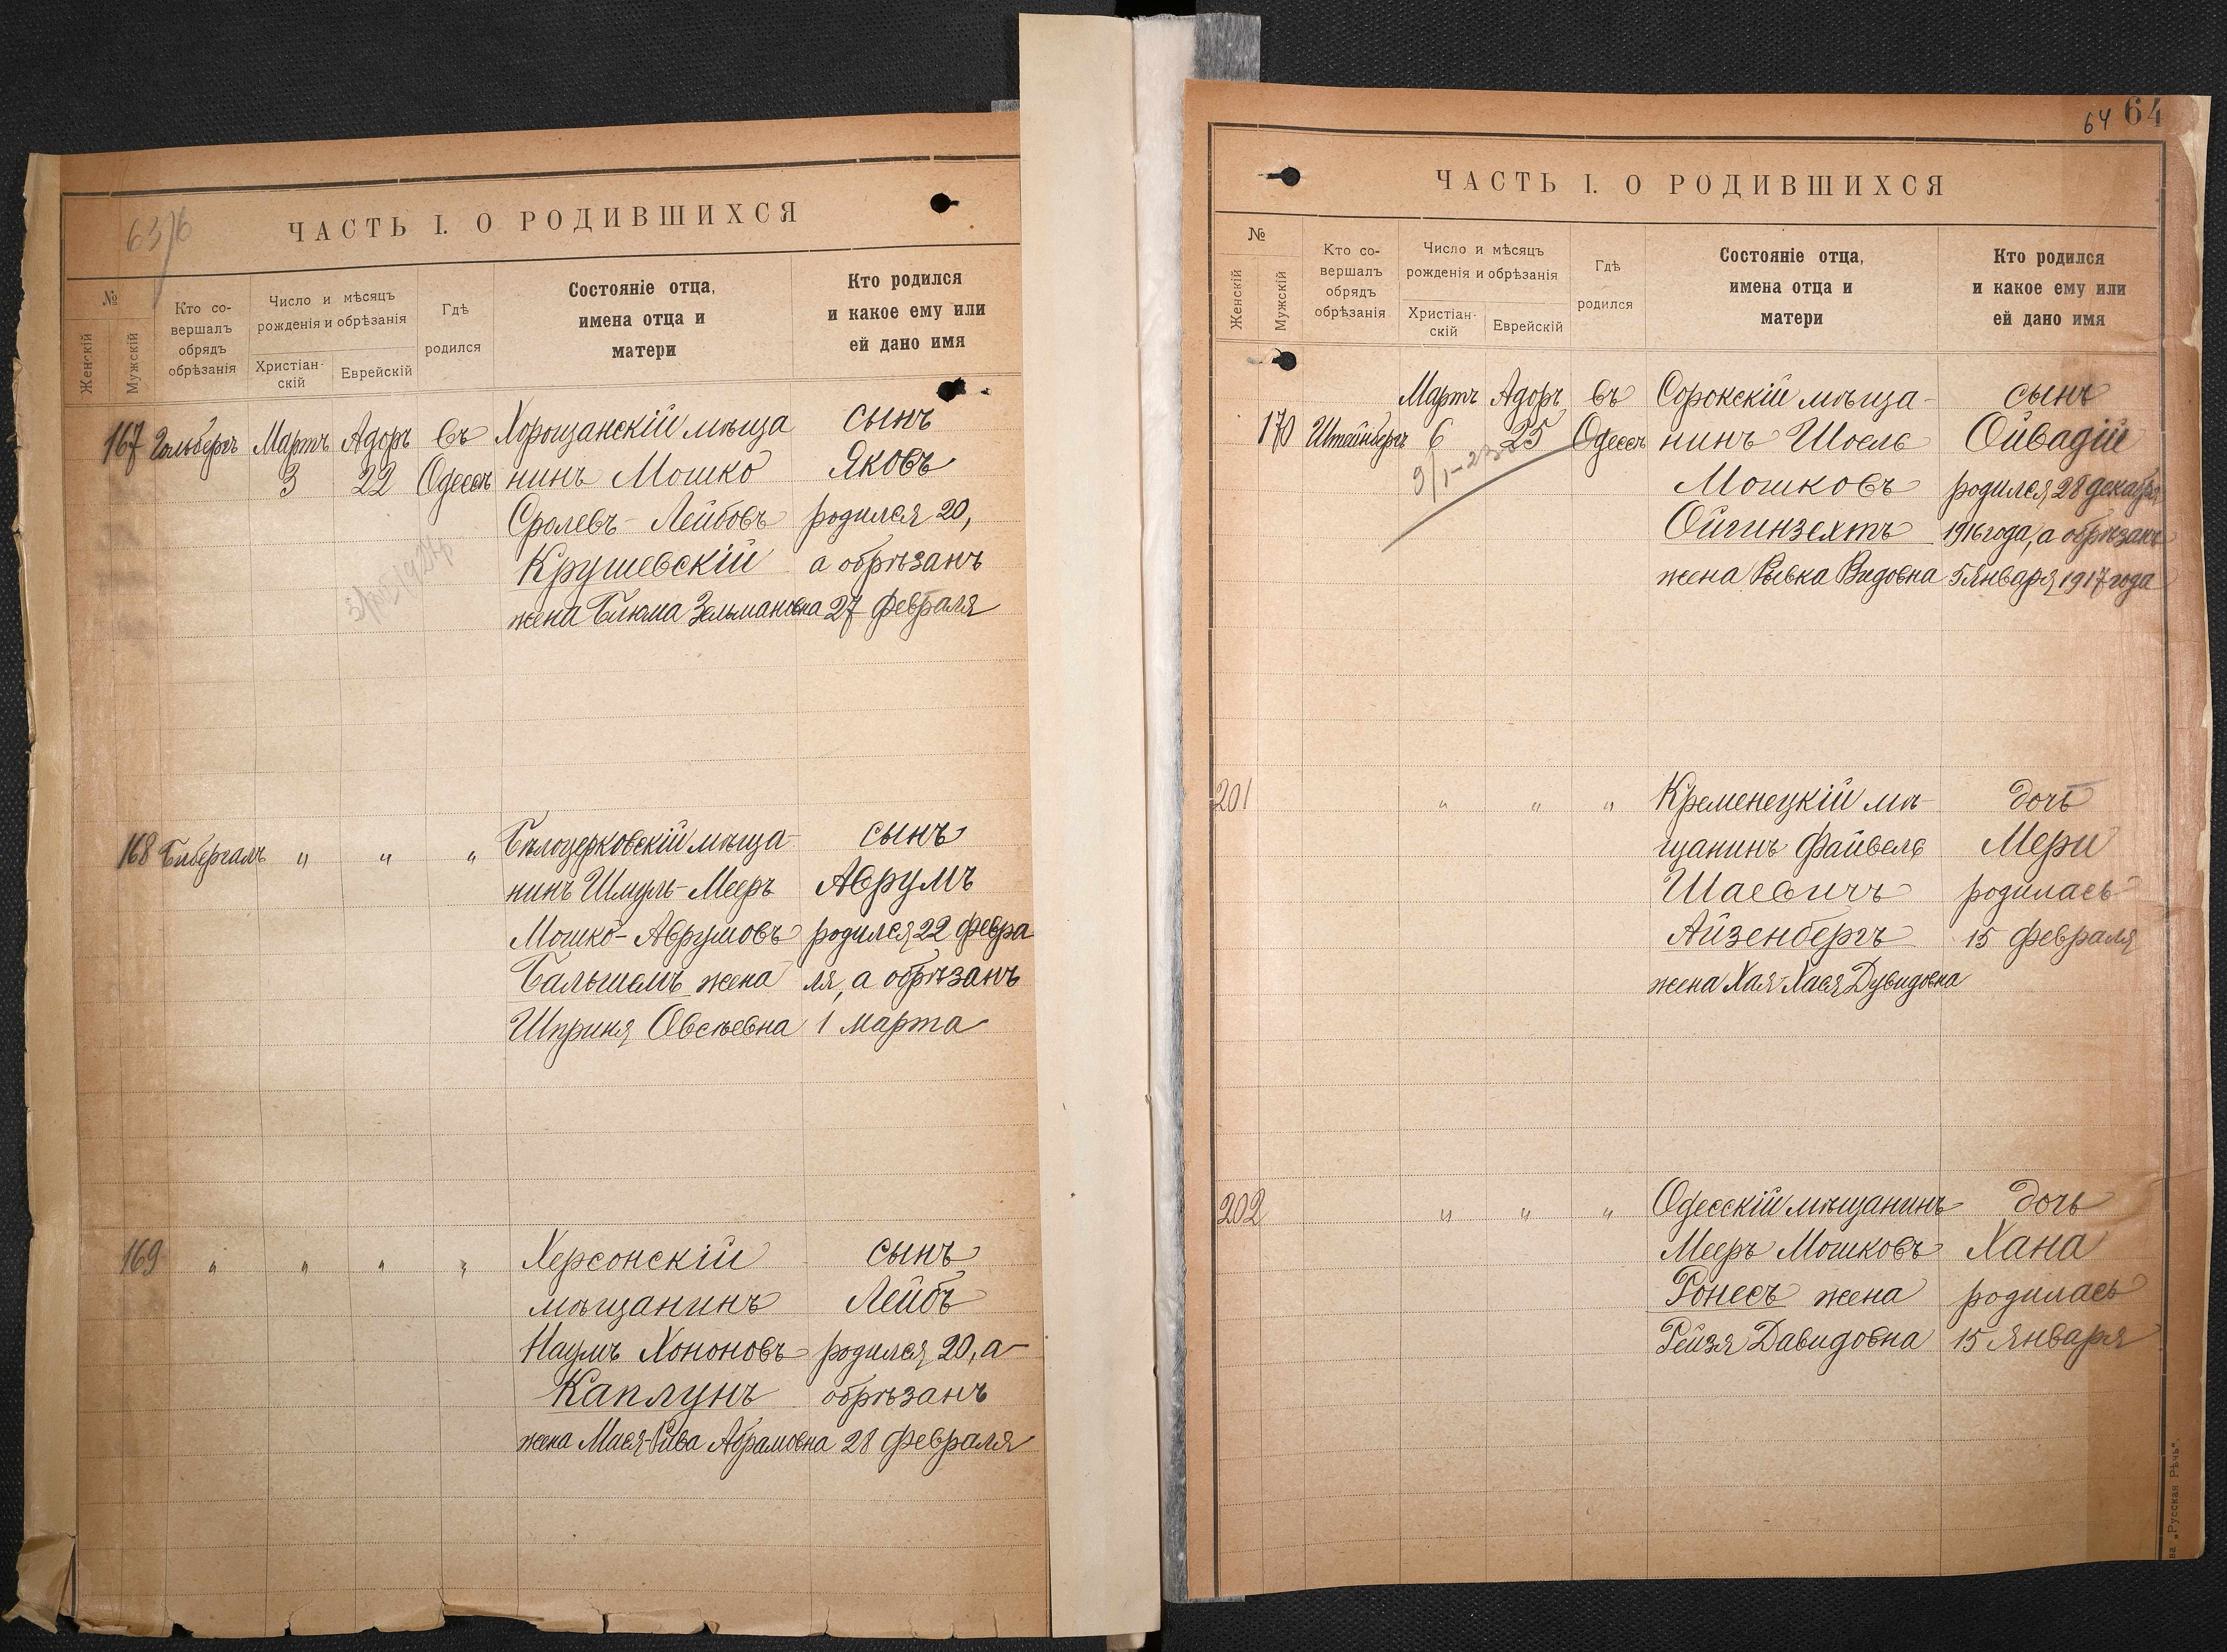 63/б
ЧАСТЬ I. О РОДИВШИХСЯ
№
Женскій
Мужскій
Кто со-
вершалъ
обрядъ
обрѣзанія
Число и мѣсяцъ
рожденія и обрѣзанія
Христіан-
скій
Еврейскій
Гдѣ
родился
Состояніе отца,
имена отца и
матери
Кто родился
и какое ему или
ей дано имя
167 Гольбергъ Мартъ Адоръ въ Хорощанскій мѣща сынъ
3 22 Одессѣ нинъ Мошко Яковъ
Сролевъ-Лейбовъ родился 20,
Крушевскій а обрѣзанъ
жена Блюма Зельмановна 27 февраля
168 Бибергалъ " " " Бѣлоцерковскій мѣща- сынъ
нинъ Шмуль-Мееръ Аврумъ
Мошко-Аврумовъ родился 22 февра
Бальшемъ жена ля, а обрѣзанъ
Шприня Овсѣевна 1 марта
169 " " " " Херсонскій сынъ
мѣщанинъ Лейбъ
Наумъ Хононовъ родился 20, а
Каплунъ обрѣзанъ
жена Мася-Рива Абрамовна 28 февраля
64 64
ЧАСТЬ I. О РОДИВШИХСЯ
№
Женскій
Мужскій
Кто со-
вершалъ
обрядъ
обрѣзанія
Число и мѣсяцъ
рожденія и обрѣзанія
Христіан-
скій
Еврейскій
Гдѣ
родился
Состояніе отца,
имена отца и
матери
Кто родился
и какое ему или
ей дано имя
Мартъ Адоръ въ Сорокскій мѣща- сынъ
170 Штейнбергъ 6 25 Одессѣ нинъ Шоель Ойвадій
Мошковъ родился 28 декабря
Ойгинзехтъ 1916 года, а обрѣзанъ
жена Рывка Видовна 5 Января 1917 года
201 " " " Кременецкій мѣ- дочь
щанинъ Файвель Мери
Шаевичъ родилась
Айзенбергъ 15 февраля
жена Хая-Хася Дувидовна
202 " " " Одесскій мѣщанинъ дочь
Мееръ Мошковъ Хана
Ронесъ жена родилась
Рейзя Давидовна 15 Января
ва „Русская Рѣчь“.